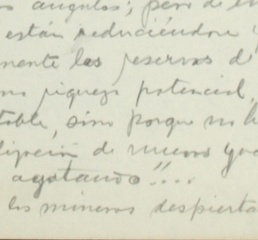 angulos; pero de
están reduciéndose y
mente las reservas de
riqueza potencial,
table, sino porque no h
de nuevos yac
agotando!!...
los mineros despierta